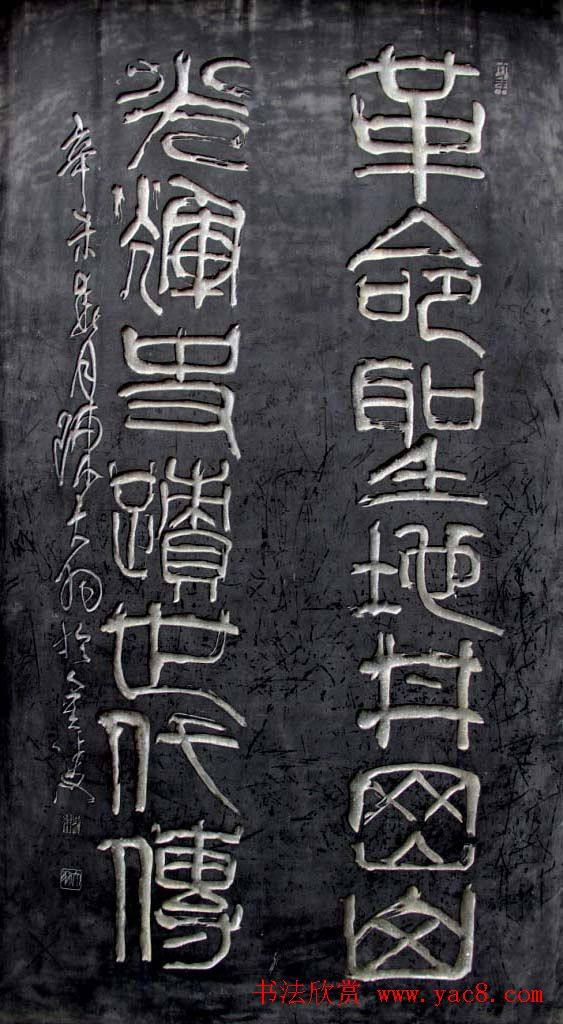 革命聖地井岡山
光輝史蹟世代傳
辛未歲月陳大羽於金陵
书法欣赏 www.yac8.com